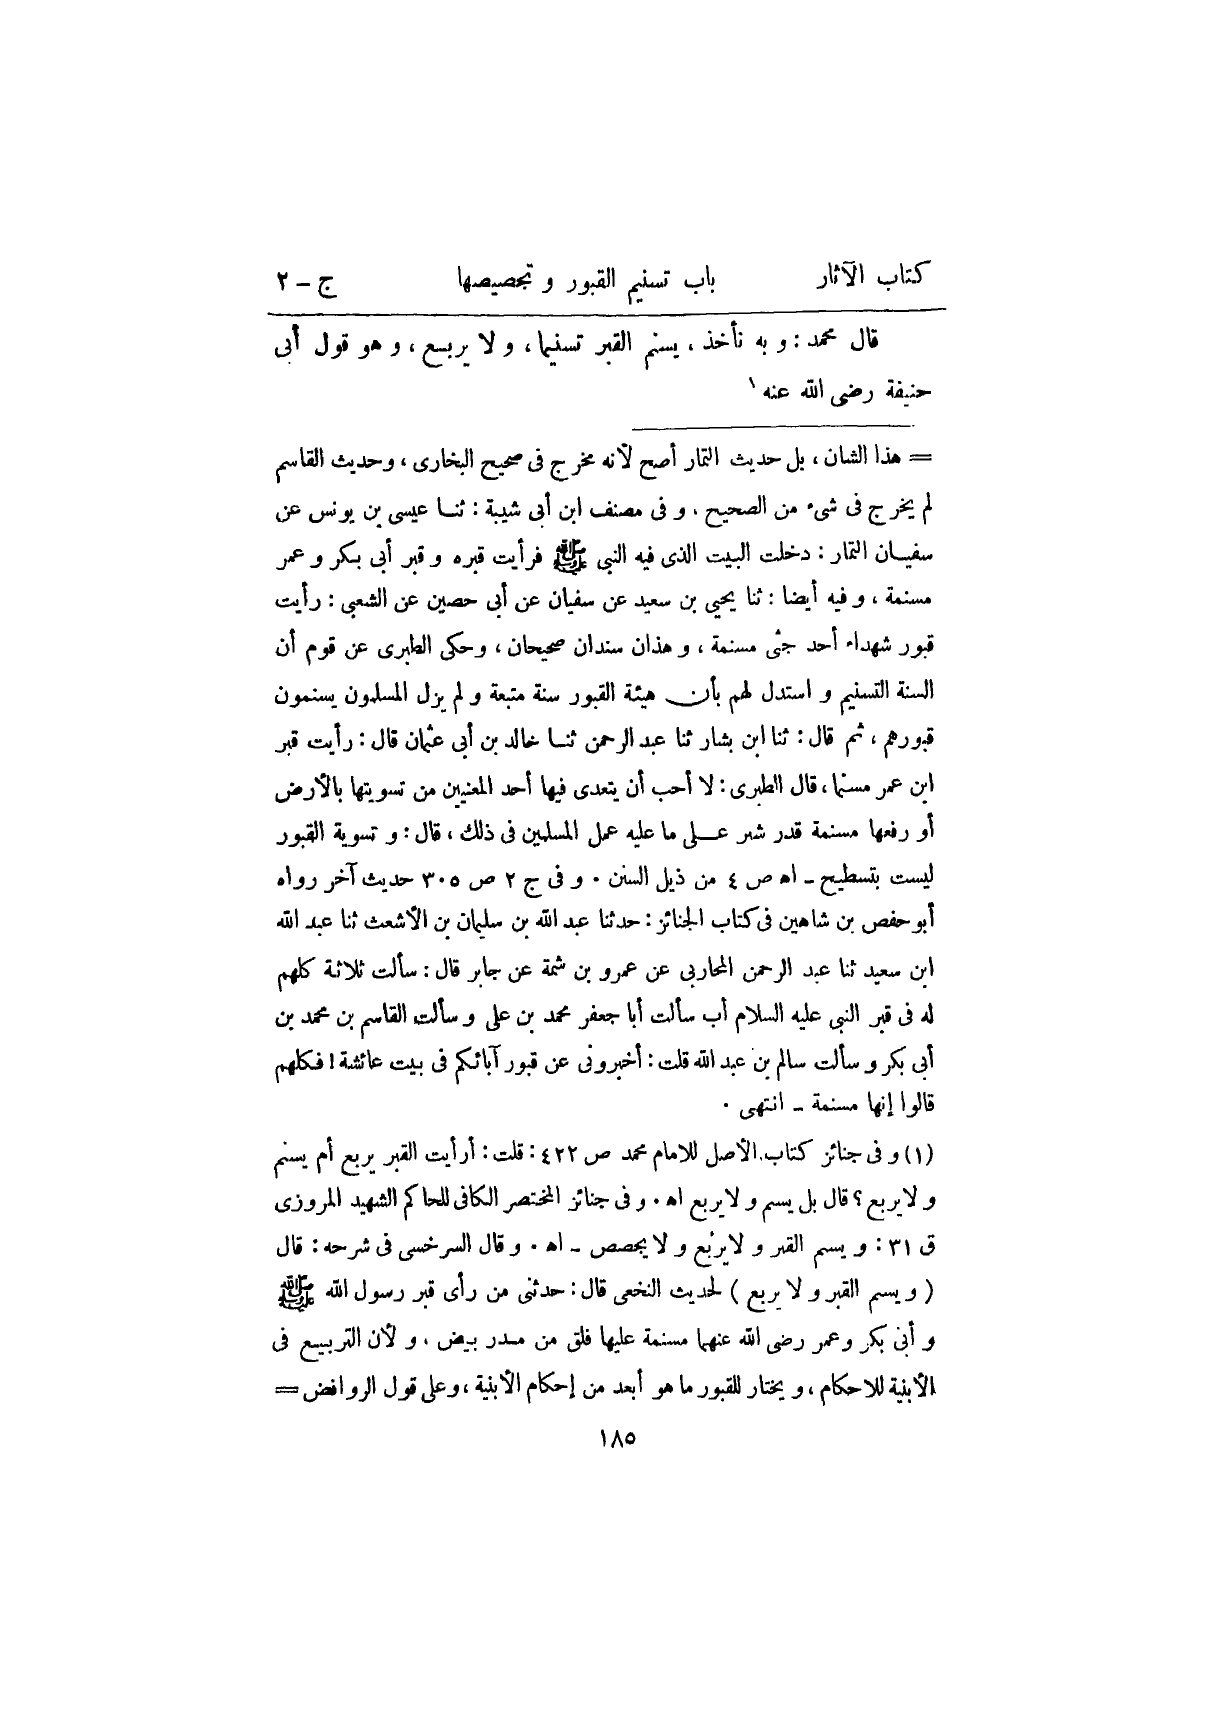 كتاب الآثار باب تسنيم القبور و تجصيصها ج – ٢
قال محمد : و به نأخذ ، يسنم القبر تسنيما ، و لا يربع ، و هو قول أبى
حنيفة رضى الله عنه ١
= هذا الشان ، بل حديث التمار أصح لأنه مخرج فى صحيح البخارى ، وحديث القاسم
لم يخرج فى شىء من الصحيح . و فى مصنف ابن أبى شيبة : ثنا عيسى بن يونس عن
سفيان التمار : دخلت البيت الذى فيه النبى ﷺ فرأيت قبره و قبر أبى بكر و عمر
مسنمة ، و فيه أيضا : ثنا يحيى بن سعيد عن سفيان عن أبى حصين عن الشعبى : رأيت
قبور شهداء أحد جثى مسنمة ، و هذان سندان صحيحان ، وحكى الطبرى عن قوم أن
السنة التسنيم و استدل لهم بأن هيئة القبور سنة متبعة و لم يزل المسلمون يسنمون
قبورهم ، ثم قال : ثنا ابن بشار ثنا عبد الرحمن ثنا خالد بن أبى عثمان قال : رأيت قبر
ابن عمر مسنما ، قال الطبرى : لا أحب أن يتعدى فيها أحد المعنيين من تسويتها بالأرض
أو رفعها مسنمة قدر شبر على ما عليه عمل المسلمين فى ذلك ، قال : و تسوية القبور
ليست بتسطيح – اه ص ٤ من ذيل السنن . و فى ج ٢ ص ٣٠٥ حديث آخر رواه
أبو حفص بن شاهين فى كتاب الجنائز : حدثنا عبد الله بن سليمان بن الأشعث ثنا عبد الله
ابن سعيد ثنا عبد الرحمن المحاربى عن عمرو بن شمة عن جابر قال : سألت ثلاثة كلهم
له فى قبر النبى عليه السلام أب سألت أبا جعفر محمد بن على و سألت القاسم بن محمد بن
أبى بكر و سألت سالم بن عبد الله قلت : أخبرونى عن قبور آبائكم فى بيت عائشة ! فكلهم
قالوا إنها مسنمة – انتهى .
(١) و فى جنائز كتاب الأصل للامام محمد ص ٤٢٢ : قلت : أرأيت القبر يربع أم يسنم
و لا يربع ؟ قال بل يسنم و لا يربع اه . و فى جنائز المختصر الكافى للحاكم الشهيد المروزى
ق ٣١ : و يسنم القبر و لا يربع و لا يجصص – اه . و قال السرخسى فى شرحه : قال
( و يسنم القبر و لا يربع ) لحديث النخعى قال : حدثنى من رأى قبر رسول الله ﷺ
و أبى بكر وعمر رضى الله عنهما مسنمة عليها فلق من مدر بيض . و لأن التربيع فى
الأبنية للاحكام ، و يختار للقبور ما هو أبعد من إحكام الأبنية ، وعلى قول الروافض =
١٨٥